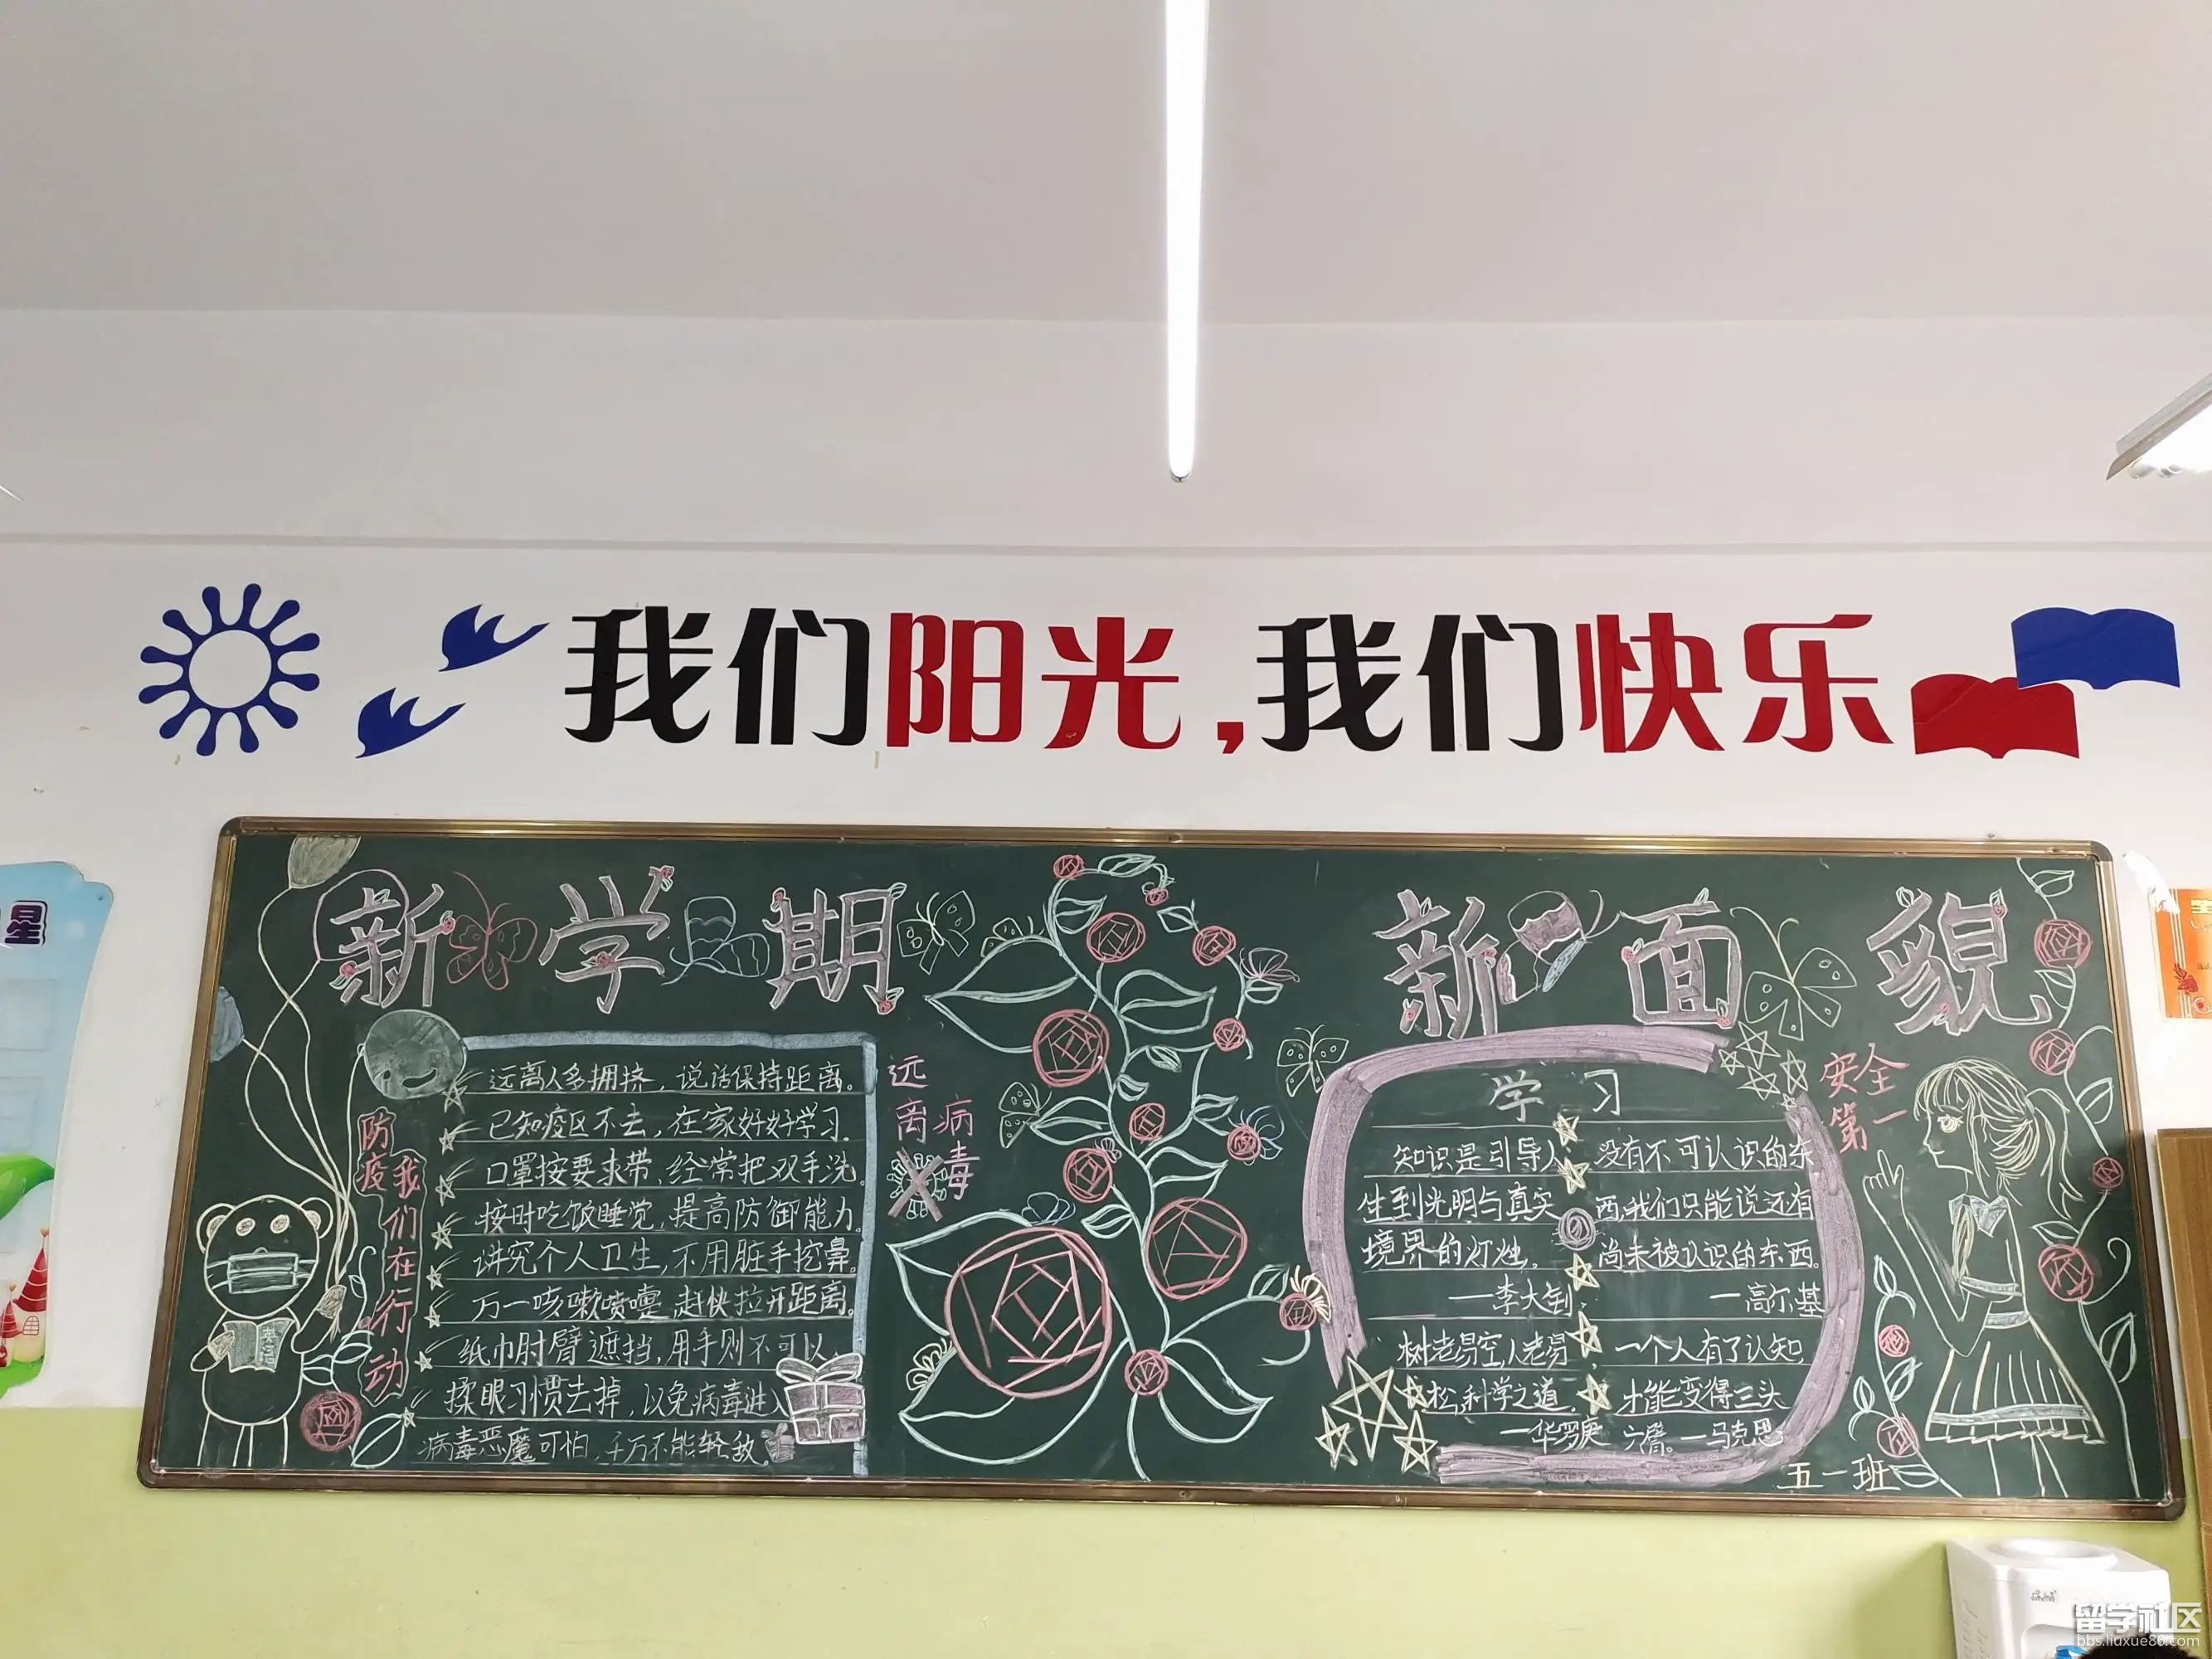 我们阳光,我们快乐
星
新学期
新面貌
远离人多拥挤，说话保持距离。
已知疫区不去，在家好好学习。
口罩按要求带，经常把双手洗。
按时吃饭睡觉，提高防御能力。
讲究个人卫生，不用脏手挖鼻。
万一咳嗽喷嚏，赶快拉开距离。
纸巾肘臂遮挡，用手则不可以。
揉眼习惯去掉，以免病毒进入
病毒恶魔可怕，千万不能轻敌。
防疫
我们在行动
远离
病毒
学习
知识是引导人
生到光明与真实
境界的灯烛。
一李大钊
树老易空，人老易
松，科学之道，
一华罗庚
没有不可认识的东
西，我们只能说还有
尚未被认识的东西。
一高尔基
一个人有了认知，
才能变得三头
六臂。一马克思
安全
第一
五一班
留学社区
bbs.liuxue86.com